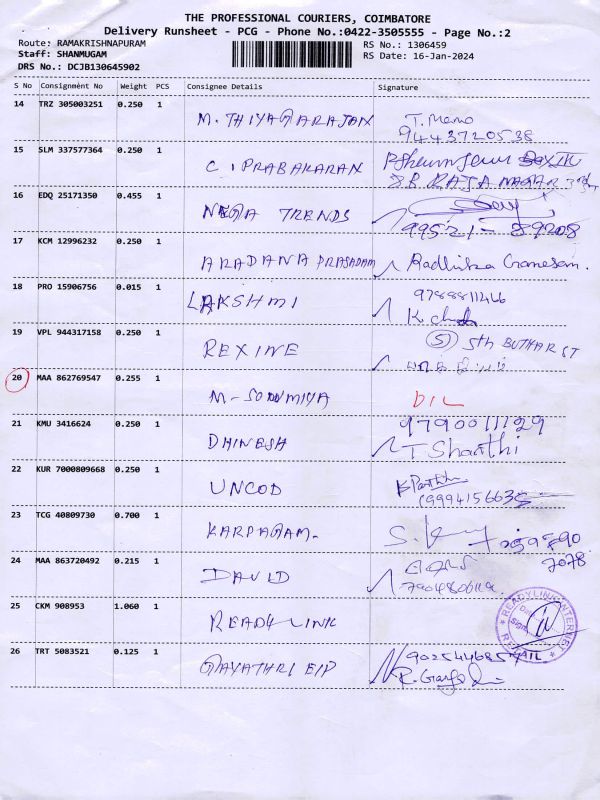 THE PROFESSIONAL COURIERS, COIMBATORE
Delivery Runsheet - PCG - Phone No.:0422-3505555 - Page No.:2
Route: RAMAKRISHNAPURAM RS No.: 1306459
Staff: SHANMUGAM RS Date: 16-Jan-2024
DRS No.: DCJB130645902
S No Consignment No Weight PCS Consignee Details Signature
14 TRZ 305003251 0.250 1
M. THIYAGARAJAN T. Mano
9443720538
15 SLM 337577364 0.250 1
C. PRABAKARAN
3 B RAJA NAGAR
16 EDQ 25171350 0.455 1
NEGA TRENDS
99521-89208
17 KCM 12996232 0.250 1
ARADANA PRASADAM Radhika Ganesan.
18 PRO 15906756 0.015 1
LAKSHMI 9788811466
19 VPL 944317158 0.250 1
REXINE 5 5th BUTHAR ST
20 MAA 862769547 0.255 1
M-SOWMIYA DIL
21 KMU 3416624 0.250 1
DHINESH 9790011129
T Shanthi
22 KUR 7000809668 0.250 1
UNCOD
23 TCG 40809730 0.700 1
KARPAGAM.
7078
24 MAA 863720492 0.215 1
DAVID
25 CKM 908953 1.060 1
READY LINK READYLINK INTERNET
26 TRT 5083521 0.125 1
GAYATHRI EIP